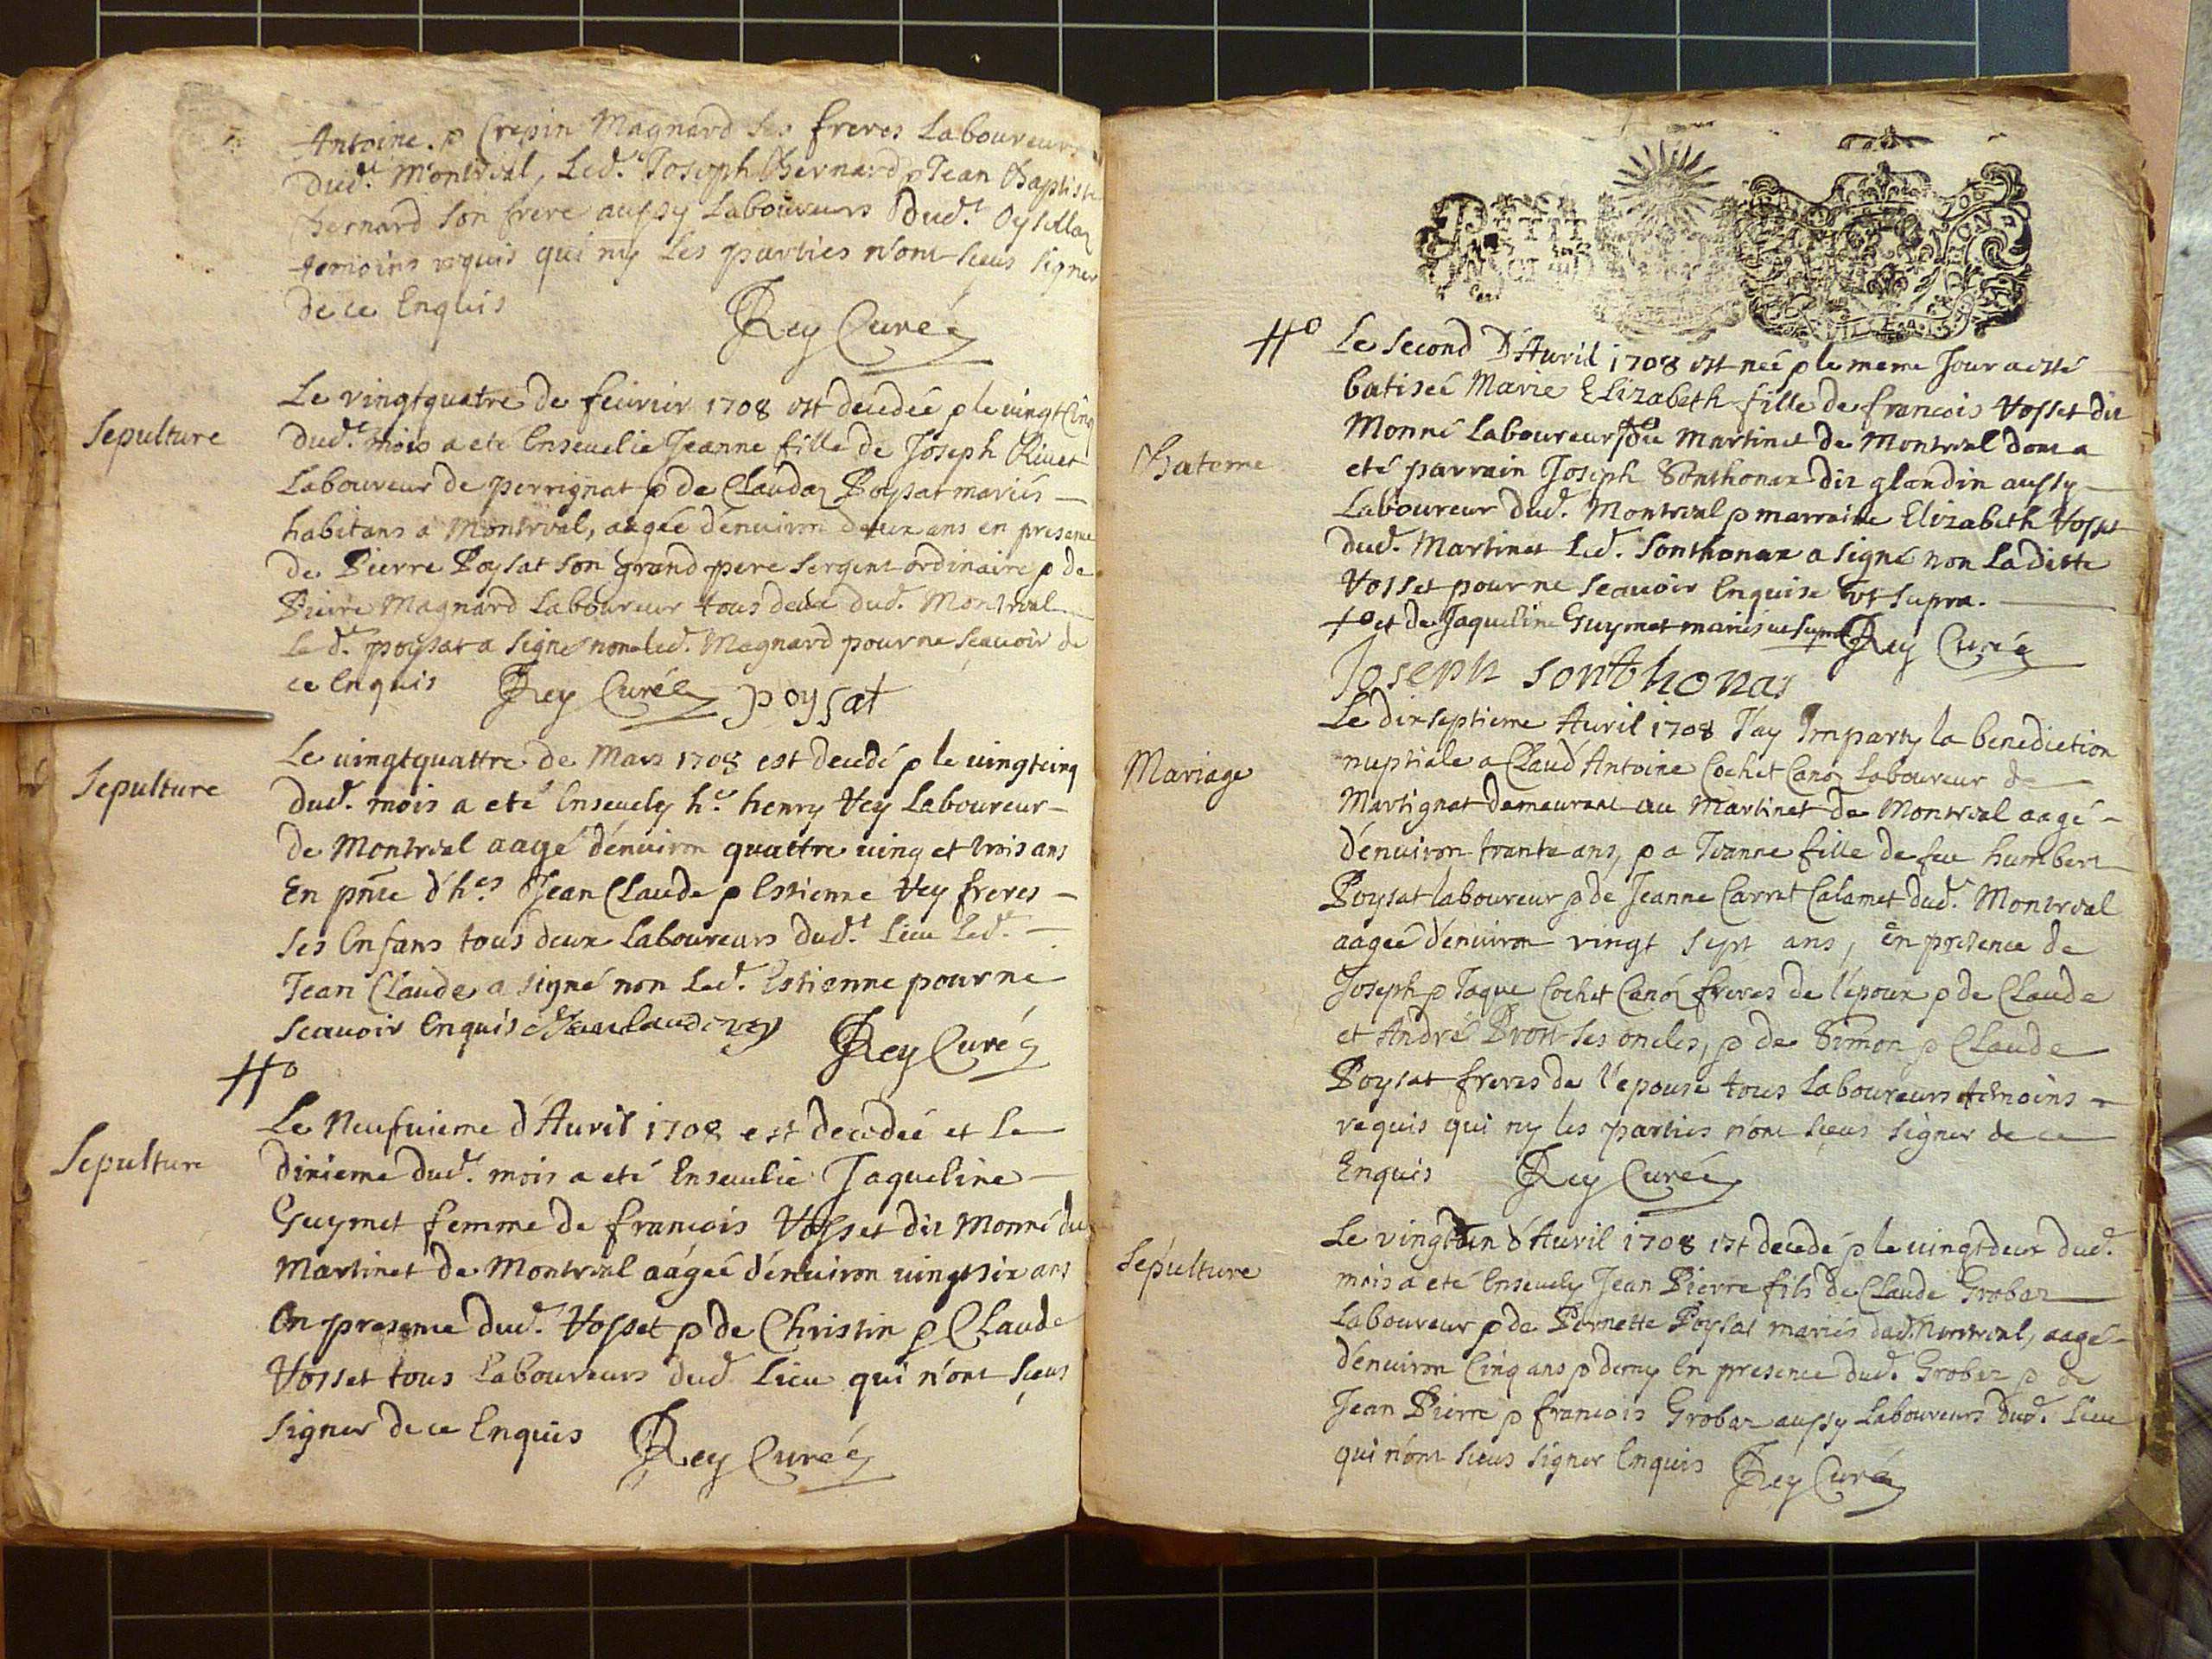 Antoine. & Crepin Magnard ses freres Laboureurs
dud.t Montreal, Led.t Joseph Bernard & Jean Baptiste
Bernard son frere aussy Laboureurs dud.t Oysellaz
temoins requis qui ny les parties n'ont sceus signer
de ce Enquis
Rey Curé
Sepulture
Le vingtquatre de feuvrier 1708 est decedée & le vingtcinq
dud.t mois a eté Enseuelie Jeanne fille de Joseph Rivet
Laboureur de perrignat & de Claudaz Poysat mariés
habitans a Montreal, aagée d'enuiron deux ans en presence
de Pierre Poysat son grand pere sergent ordinaire & de
Pierre Magnard Laboureur tous deux dud. Montreal
Le d. poysat a signé non led. Magnard pour ne sçauoir de
ce Enquis Rey Curé poysat
Sepulture
Le uingtquattre de Mars 1708 est decedé & le uingtcinq
dud. mois a eté Enseuely h.e henry Vey Laboureur
de Montreal aagé d'enuiron quattre uing et trois ans
En pñce d'h.es Jean Claude & Estienne Vey freres
ses Enfans tous deux Laboureurs dud.t Lieu Led.
Jean Claude a signé non Led. Estienne pour ne
sçauoir Enquis Jean Claude vey Rey Curé
Sepulture
Le Neufuieme d'Auril 1708 est decedée et le
dixieme dud. mois a eté Enseuelie Jaqueline
Guymet femme de francois Vosset dit Monné du
Martinet de Montreal aagée d'enuiron uingtsix ans
En presence dud. Vosset & de Christin & Claude
Vosset tous Laboureurs dud. Lieu qui n'ont sceus
signer de ce Enquis Rey Curé
Le second D'Auril 1708 est neé & le meme Jour a esté
batiseé Marie Elizabeth fille de francois Vosset dit
Monné Laboureur du Martinet de Montreal dont a
Bateme
eté parrain Joseph Sonthonax dit glandin aussy
Laboureur dud. Montreal & marraine Elizabeth Vosset
dud. Martinet Led. Sonthonax a signé non La ditte
Vosset pour ne sceauoir Enquise ut supra.
et de Jaqueline Guymet mariés ut supra Rey Curé
Joseph sonthonax
Mariage
Le dixseptieme Auril 1708 J'ay Imparty la benediction
nuptiale a Claud Antoine Cochet Canoz Laboureur de
Martignat demeurant au Martinet de Montreal aagé
d'enuiron trante ans, & a Jvanne fille de feu humbert
Poysat laboureur & de Jeanne Carret Calamet dud. Montreal
aageé d'enuiron vingt sept ans, En presence de
Joseph & Jaque Cochet Canoz freres de l'époux & de Claude
et André Bron ses oncles, & de Simon & Claude
Poysat freres de l'epouse tous Laboureurs temoins
requis qui ny les parties n'ont sceus signer de ce
Enquis Rey Curé
Sépulture
Le vingtun d'Auril 1708 est decedé & le uingtdeux dud.
mois a eté Enseuely Jean Pierre fils de Claude Grobaz
Laboureur & de Pernette Poysat mariés dud. Montreal, aagé
d'enuiron Cinq ans & demy En presence dud. Grobaz & de
Jean Pierre & francois Grobaz aussy Laboureurs dud. Lieu
qui n'ont sceus signer Enquis Rey Curé